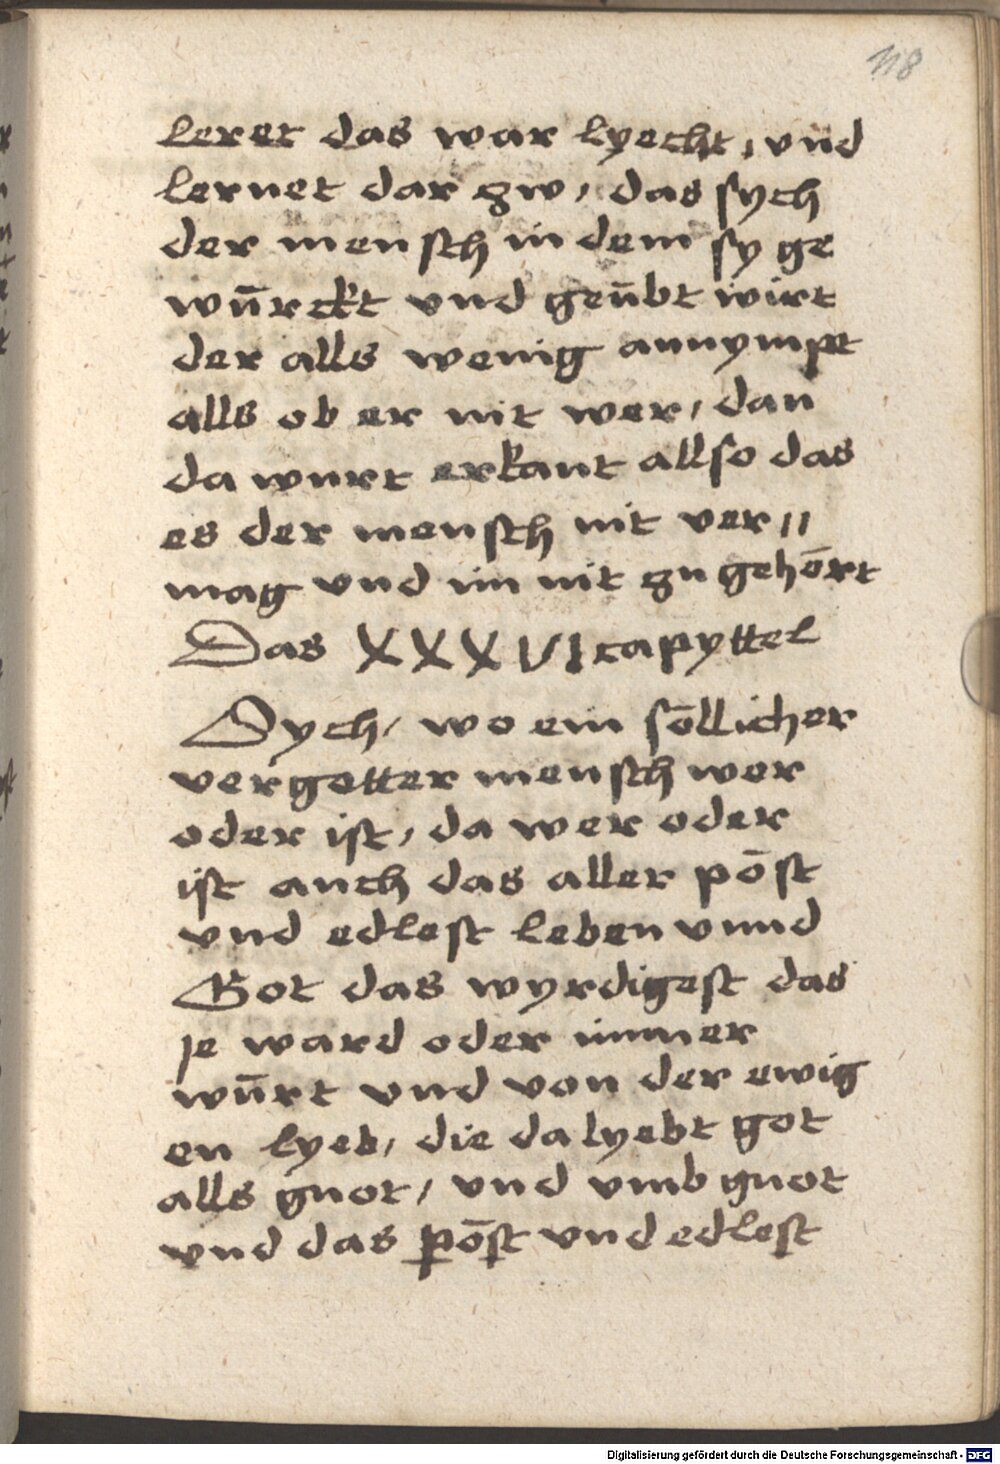 118
leret das war lyecht, vnd
lernet dar zw, das sych
der mensch in dem sy ge
wu̅rckt vnd geu̅bt wirt
der alls wenig annympt
alls ob er nit wer, dan
da wurt erkant allso das
es der mensch nit ver//
mag vnd im nit zu geho̅rt
Das XXXVI capyttel
Sych, wo ein so̅llicher
vergotter mensch wer
oder ist, da wer oder
ist auch das aller po̅st
vnd edlest leben vnnd
Got das wyrdigest das
je ward oder immer
wu̅rt vnd von der ewig
en lyeb, die da lyebt got
alls guot, vnd vmb guot
vnd das po̅st vnd edlest
Digitalisierung gefördert durch die Deutsche Forschungsgemeinschaft - DFG